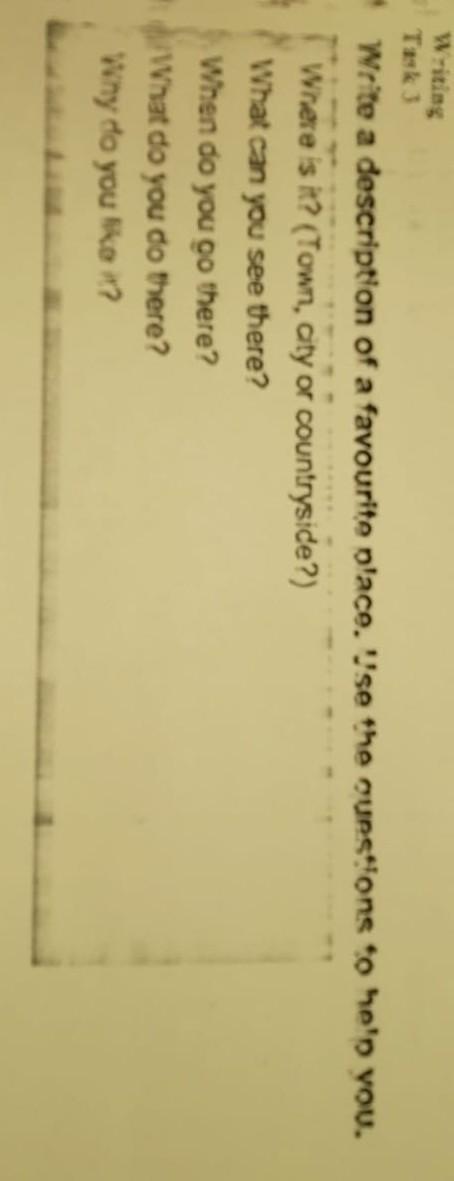 Writing
Task 3
Write a description of a favourite place. Use the questions to help you.
Where is it? (Town, city or countryside?)
What can you see there?
When do you go there?
What do you do there?
Why do you like it?